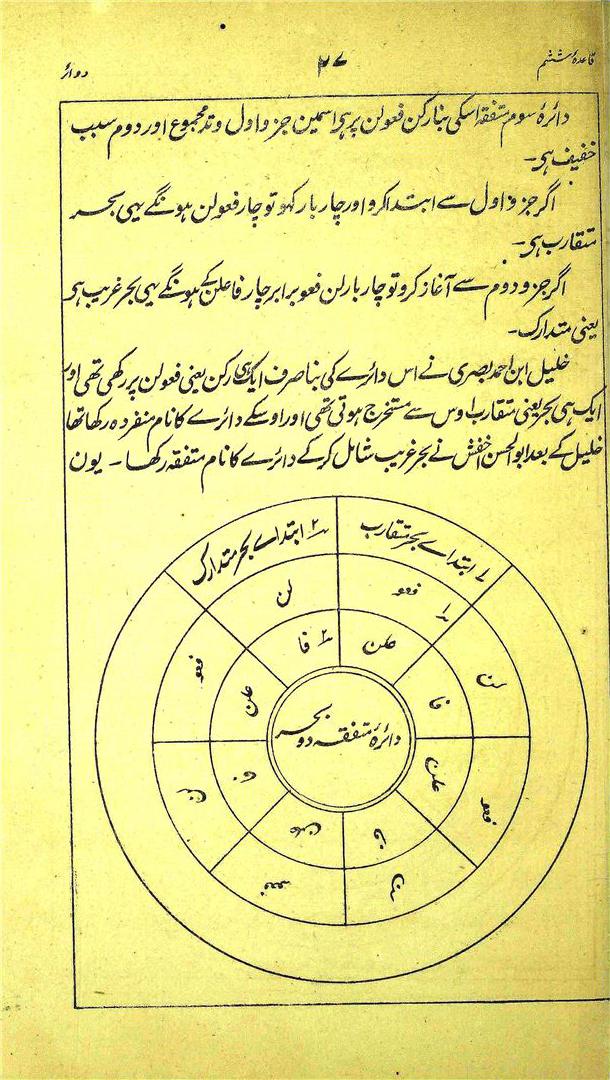 قاعدۂ ششم
۲۷
دوائر
دائرۂ سوم متفقہ اسکی بنا رکن فعولن پر ہی اسمین جزو اول وتد مجموع اور دوم سبب
خفیف ہی۔
اگر جزو اول سے ابتدا کرو اور چار بار کہو تو چار فعولن ہونگے یہی بحر
متقارب ہی۔
اگر جزو دوم سے آغاز کرو تو چار بار لن فعو برابر چار فاعلن کے ہونگے یہی بحر غریب ہی
یعنی متدارک۔
خلیل ابن احمد بصری نے اس دائرے کی بنا صرف ایک ہی رکن یعنی فعولن پر رکھی تھی اور
ایک ہی بحر یعنی متقارب اوس سے مستخرج ہوتی تھی اور اوسکے دائرے کا نام منفردہ رکھا تھا
خلیل کے بعد ابو الحسن اخفش نے بحر غریب شامل کر کے دائرے کا نام متفقہ رکھا ۔ یون
۱ ابتداے بحر متقارب
۲ ابتداے بحر متدارک
۱ فعو
لن
فعو
لن
فعو
لن
فعو
لن
علن
فا
علن
فا
علن
فا
علن
۲ فا
دائرۂ متفقہ دو بحر